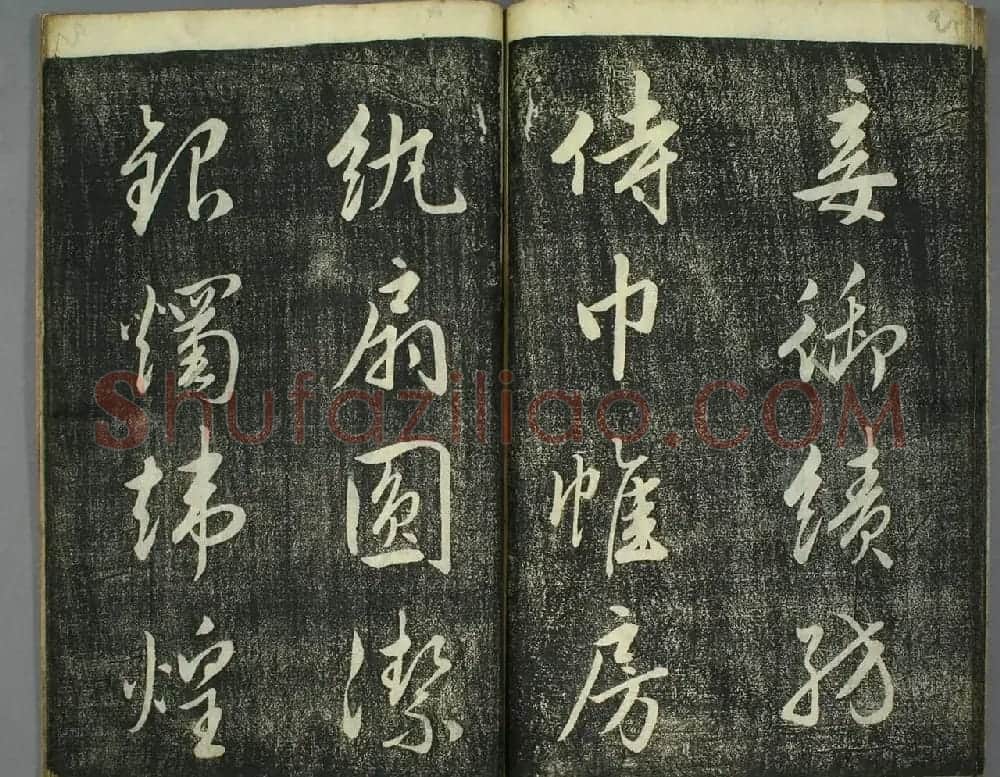 妾御績紡
侍巾帷房
紈扇圓潔
銀燭煒煌
Shufaziliao.COM